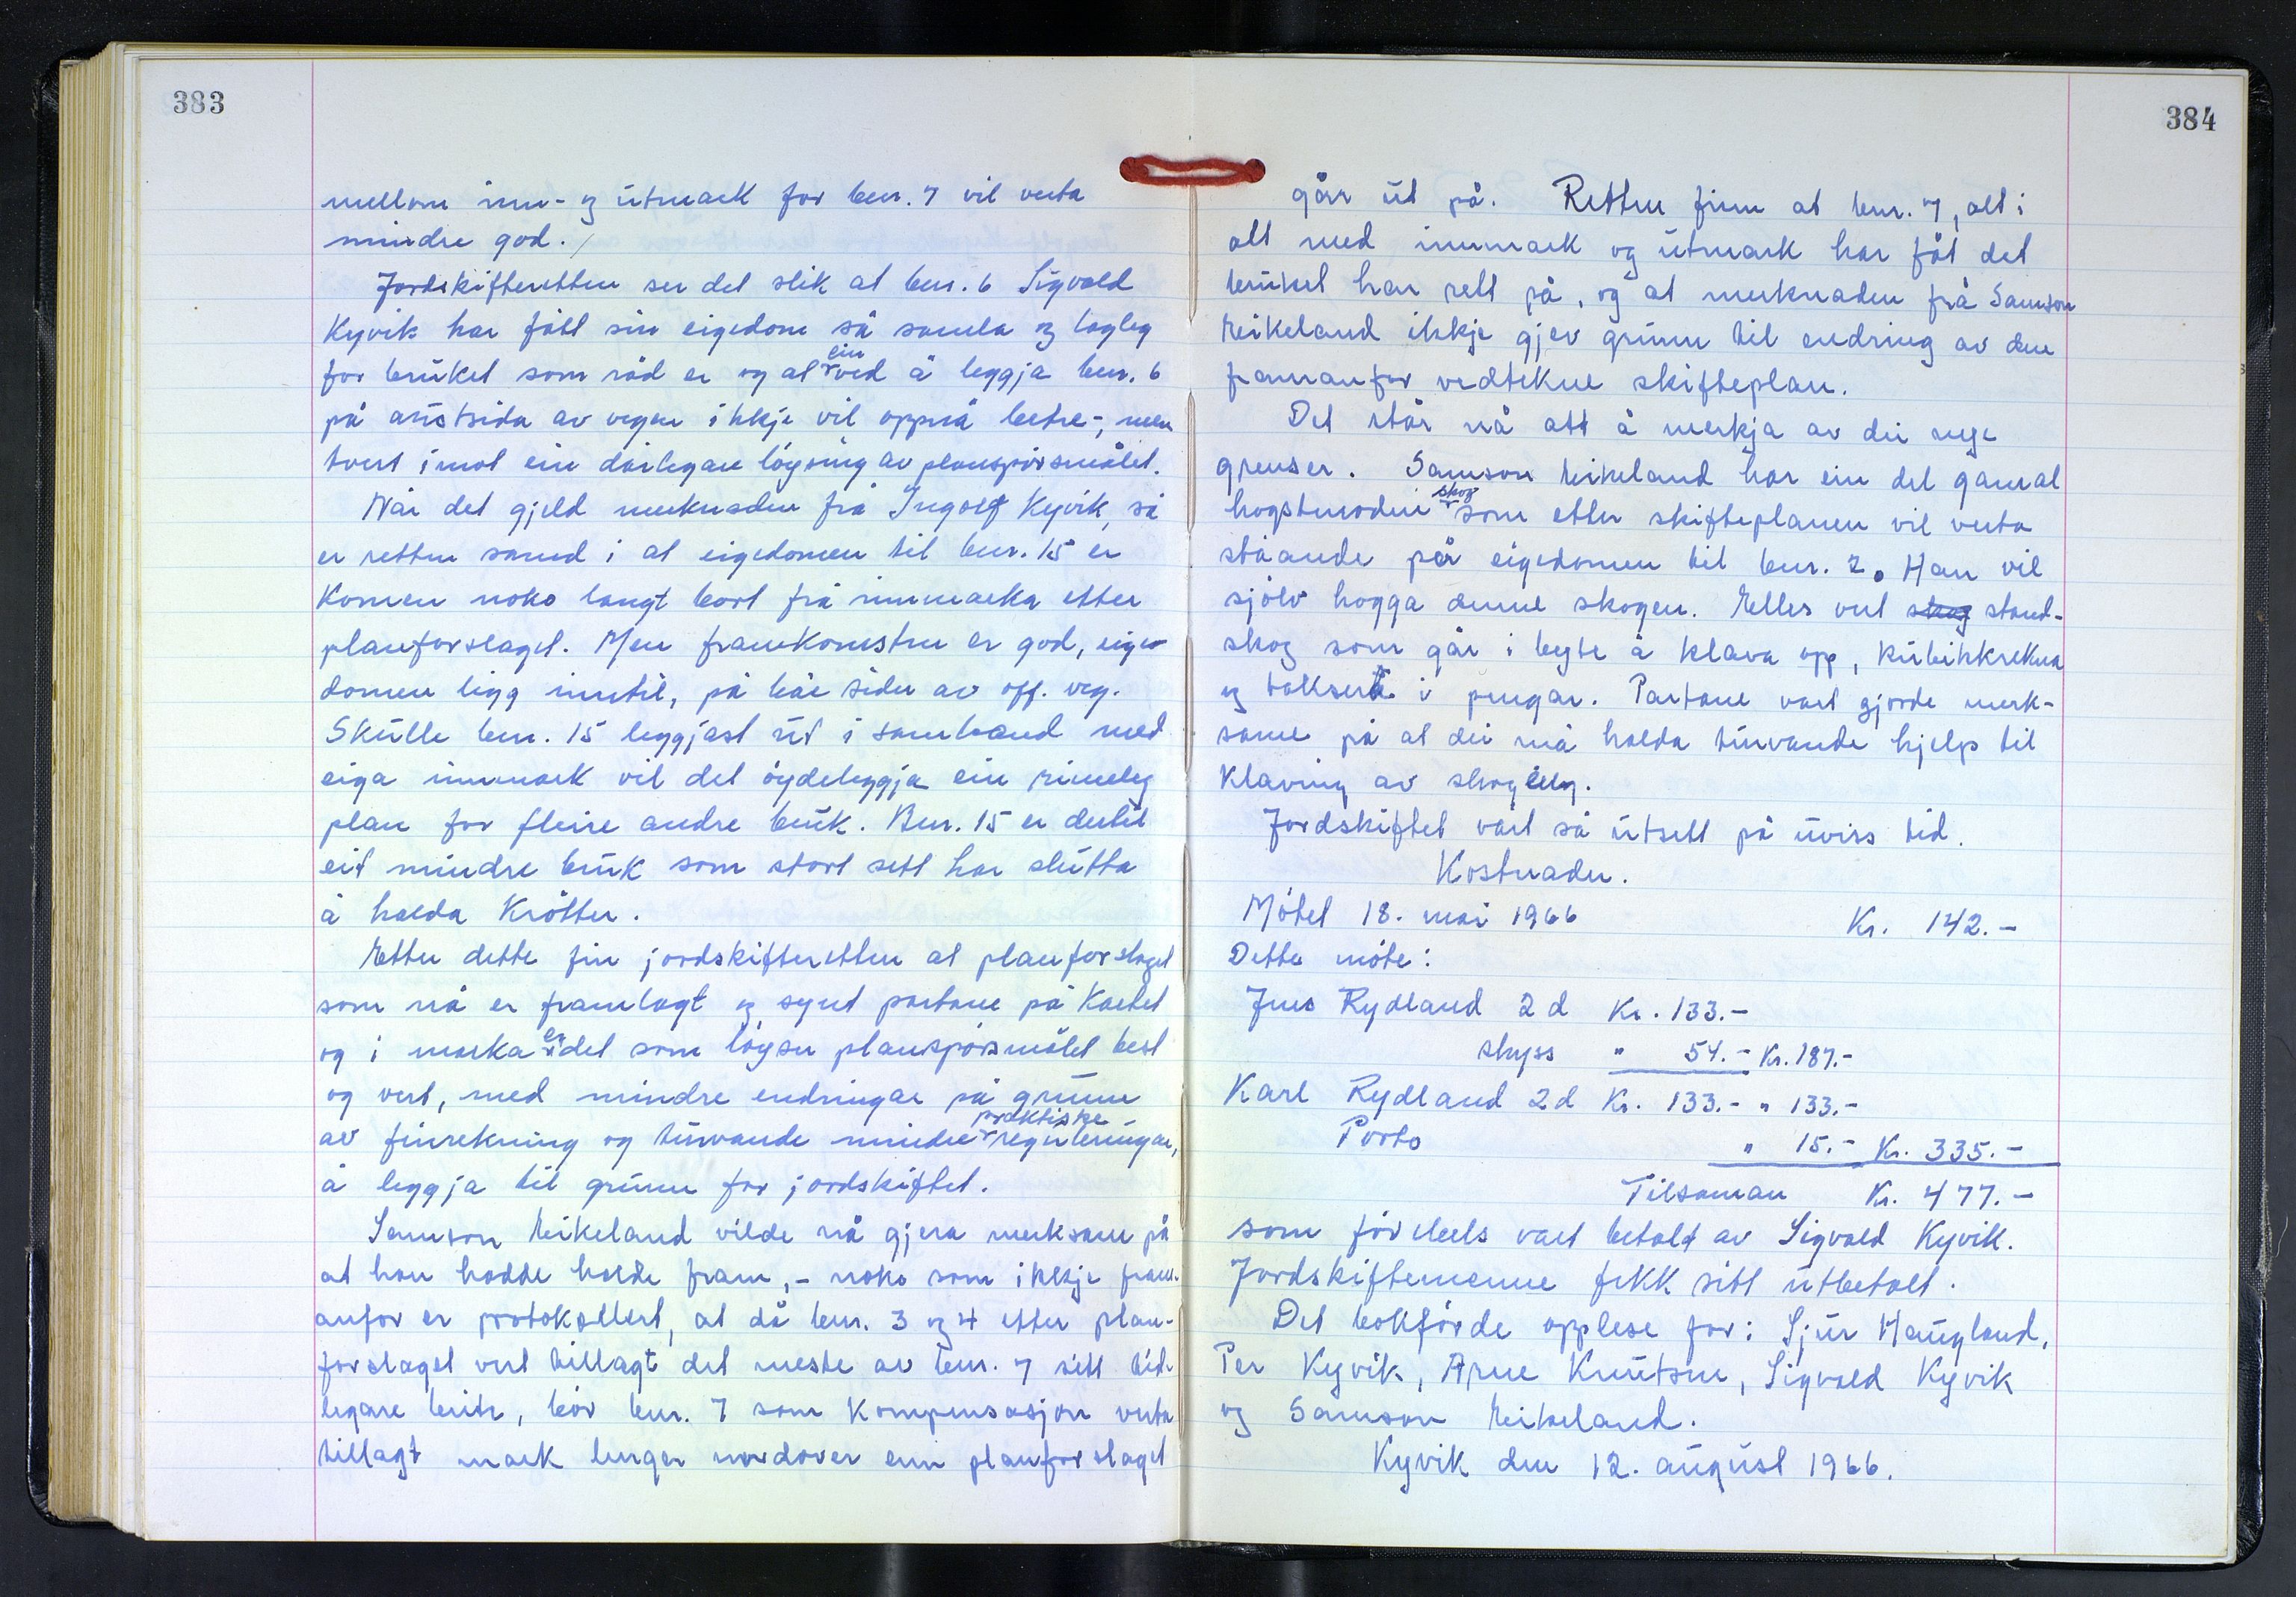 383
mellom inn- og utmark for bnr. 7 vil verta
mindre god.
Jordskifteretten ser det slik at bnr. 6 Sigvald
Kyvik har fått sin eigedom så samla og lagleg
for bruket som råd er og at ein ved å leggja bnr. 6
på austsida av vegen ikkje vil oppnå betre-, men
tvert imot ein dårlegare löysing av planspörsmålet.
Når det gjeld merknaden frå Ingolf Kyvik, så
er retten samd i at eigedomen til bnr. 15 er
komen noko langt bort frå innmarka etter
planforslaget. Men framkomsten er god, eige-
domen ligg inntil, på båe sider av off. veg.
Skulle bnr. 15 leggjast ut i samband med
eiga innmark vil det öydeleggja ein rimeleg
plan for fleire andre bruk. Bnr. 15 er dertil
eit mindre bruk som stort sett har slutta
å halda krötter.
Etter dette finn jordskifteretten at planforslaget
som nå er framlagt og synt partane på kartet
og i marka er det som löyser planspörsmålet best
og vert, med mindre endringar på grunn
av finrekning og turvande mindre praktiske reguleringar,
å leggja til grunn for jordskiftet.
Samson Eikeland vilde nå gjera merksam på
at han hadde halde fram, - noko som ikkje fram-
anfor er protokollert, at då bnr. 3 og 4 etter plan-
forslaget vert tillagt det meste av bnr. 7 sitt tid-
legare beite, bör bnr. 7 som kompensasjon verta
tillagt mark lenger nordover enn planforslaget
384
går ut på. Retten finn at bnr. 7, alt i
alt med innmark og utmark har fåt det
bruket har rett på, og at merknaden frå Samson
Eikeland ikkje gjev grunn til endring av den
framanfor vedtekne skifteplan.
Det står nå att å merkja av dei nye
grenser. Samson Eikeland har ein del gamal
hogstmoden skog som etter skifteplanen vil verta
ståande på eigedomen til bnr. 2. Han vil
sjölv hogga denne skogen. Elles vert skog stand-
skog som går i byte å klava opp, kubikkrekna
og taksert i pengar. Partane vart gjorde merk-
same på at dei må halda turvande hjelp til
klaving av skogen.
Jordskiftet vart så utsett på uviss tid.
Kostnader.
Mötet 18. mai 1966 Kr. 142.-
Dette möte:
Jens Rydland 2 d Kr. 133.-
skyss " 54.- Kr. 187.-
Karl Rydland 2 d Kr. 133.- " 133.-
Porto " 15.- Kr. 335.-
Tilsaman Kr. 477.-
som förebels vart betalt av Sigvald Kyvik.
Jordskiftemenne fekk sitt utbetalt.
Det bokförde opplese for: Sjur Haugland,
Per Kyvik, Arne Knutsen, Sigvald Kyvik
og Samson Eikeland.
Kyvik den 12. august 1966.